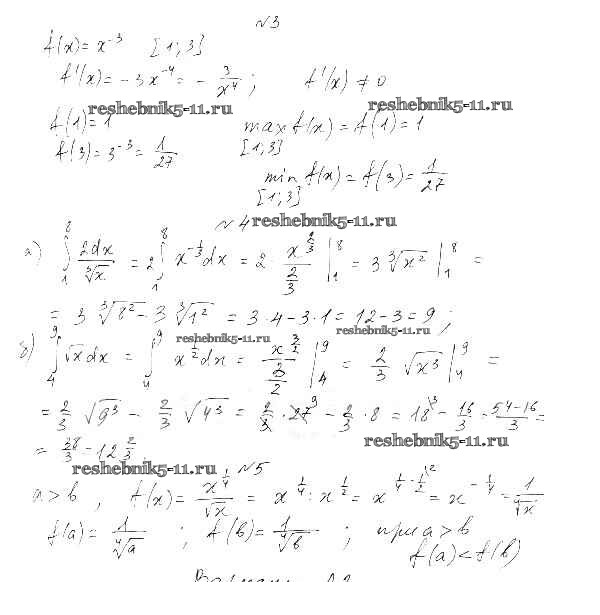 №3
f(x) = x⁻³ [1; 3]
f'(x) = -3x⁻⁴ = - 3/x⁴ ; f'(x) ≠ 0
reshebnik5-11.ru reshebnik5-11.ru
f(1) = 1 max f(x) = f(1) = 1
[1; 3]
f(3) = 3⁻³ = 1/27
min f(x) = f(3) = 1/27
[1; 3]
№4 reshebnik5-11.ru
а) ∫₁⁸ 2dx/∛x = 2∫₁⁸ x^(-1/3)dx = 2 · x^(2/3)/(2/3) |₁⁸ = 3 ∛x² |₁⁸ =
= 3 ∛8² - 3 ∛1² = 3·4 - 3·1 = 12 - 3 = 9 ;
reshebnik5-11.ru reshebnik5-11.ru
б) ∫₄⁹ √x dx = ∫₄⁹ x^(1/2)dx = x^(3/2)/(3/2) |₄⁹ = 2/3 √x³ |₄⁹ =
= 2/3 √9³ - 2/3 √4³ = 2/3 · 27⁹ - 2/3 · 8 = 18\³ - 16/3 = 54-16/3 =
= 38/3 = 12 2/3. reshebnik5-11.ru
reshebnik5-11.ru №5
a > b , f(x) = x^(1/4)/√x = x^(1/4) : x^(1/2) = x^(1/4 - 1/2\²) = x^(-1/4) = 1/⁴√x
f(a) = 1/⁴√a ; f(b) = 1/⁴√b ; при a > b
f(a) < f(b)